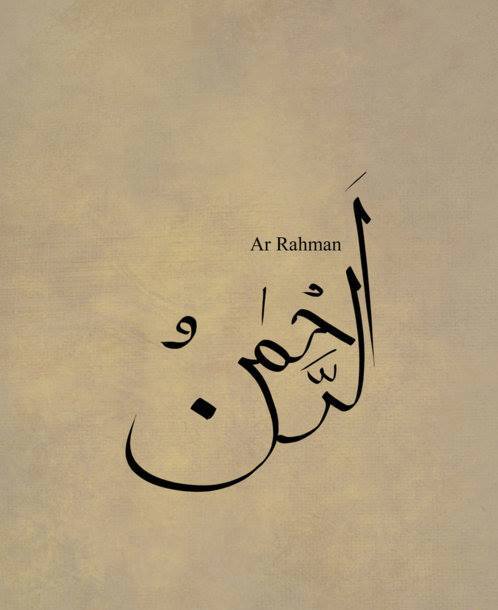 Ar Rahman
الرَّحْمَٰنُ